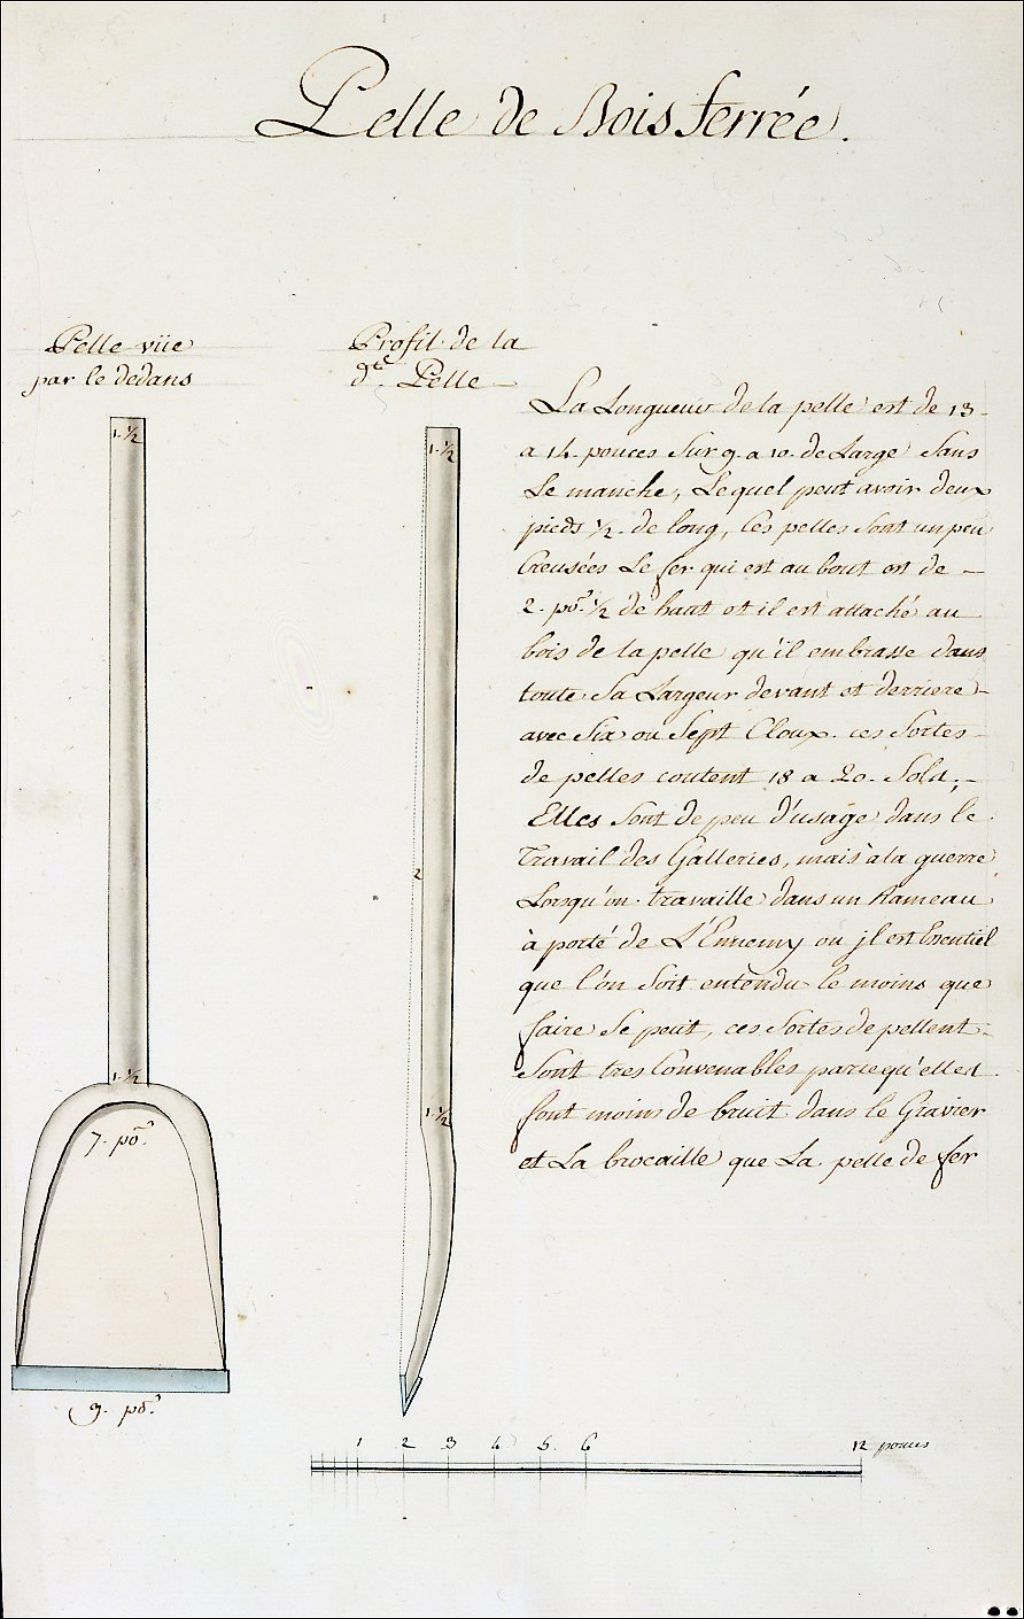 Pelle de Bois ferrée.
Pelle vüe
par le dedans
Profil de la
d.te Pelle
1.½
1.½
La Longueur de la pelle est de 13
a 14. pouces Sur 9. a 10. de Large Sans
Le manche, Lequel peut avoir deux
pieds ½. de long, Ces pelles Sont un peu
Creusées Le fer qui est au bout est de
2. po. ½ de haut et il est attaché au
bois de la pelle qu'il embrasse dans
toute Sa Largeur devant et derriere
avec Six ou Sept Cloux. ces Sortes
de pelles coutent 18 a 20. Sols,
Elles Sont de peu d'usage dans le
Travail des Galleries, mais à la guerre
Lorsqu'on travaille dans un Rameau
à porté de L'Ennemy ou jl est Essentiel
que l'on Soit entendu le moins que
faire Se peut, ces Sortes de pellent
Sont tres Convenables parcequ'elles
font moins de bruit dans le Gravier
et La brocaille que La pelle de fer
2
1.½
1.½
7. po.
9. po.
1 2 3 4 5. 6 12 pouces